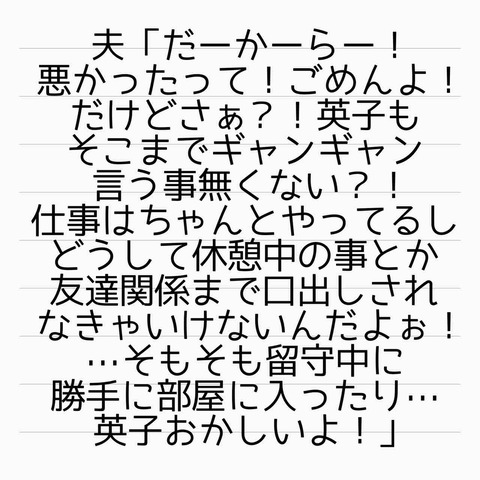 夫「だーかーらー！
悪かったって！ごめんよ！
だけどさぁ？！英子も
そこまでギャンギャン
言う事無くない？！
仕事はちゃんとやってるし
どうして休憩中の事とか
友達関係まで口出しされ
なきゃいけないんだよぉ！
…そもそも留守中に
勝手に部屋に入ったり…
英子おかしいよ！」